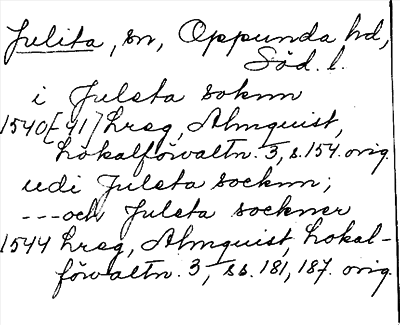 Julita, sn, Oppunda hd,
Söd. l.
i Julsta soknn
1540[41] hrsg, Almquist,
Lokalförvaltn. 3, s. 154. orig.
udi Julsta socknn;
---och Julsta sockner
1544 hrsg, Almquist, Lokal-
förvaltn. 3, ss. 181, 187. orig.